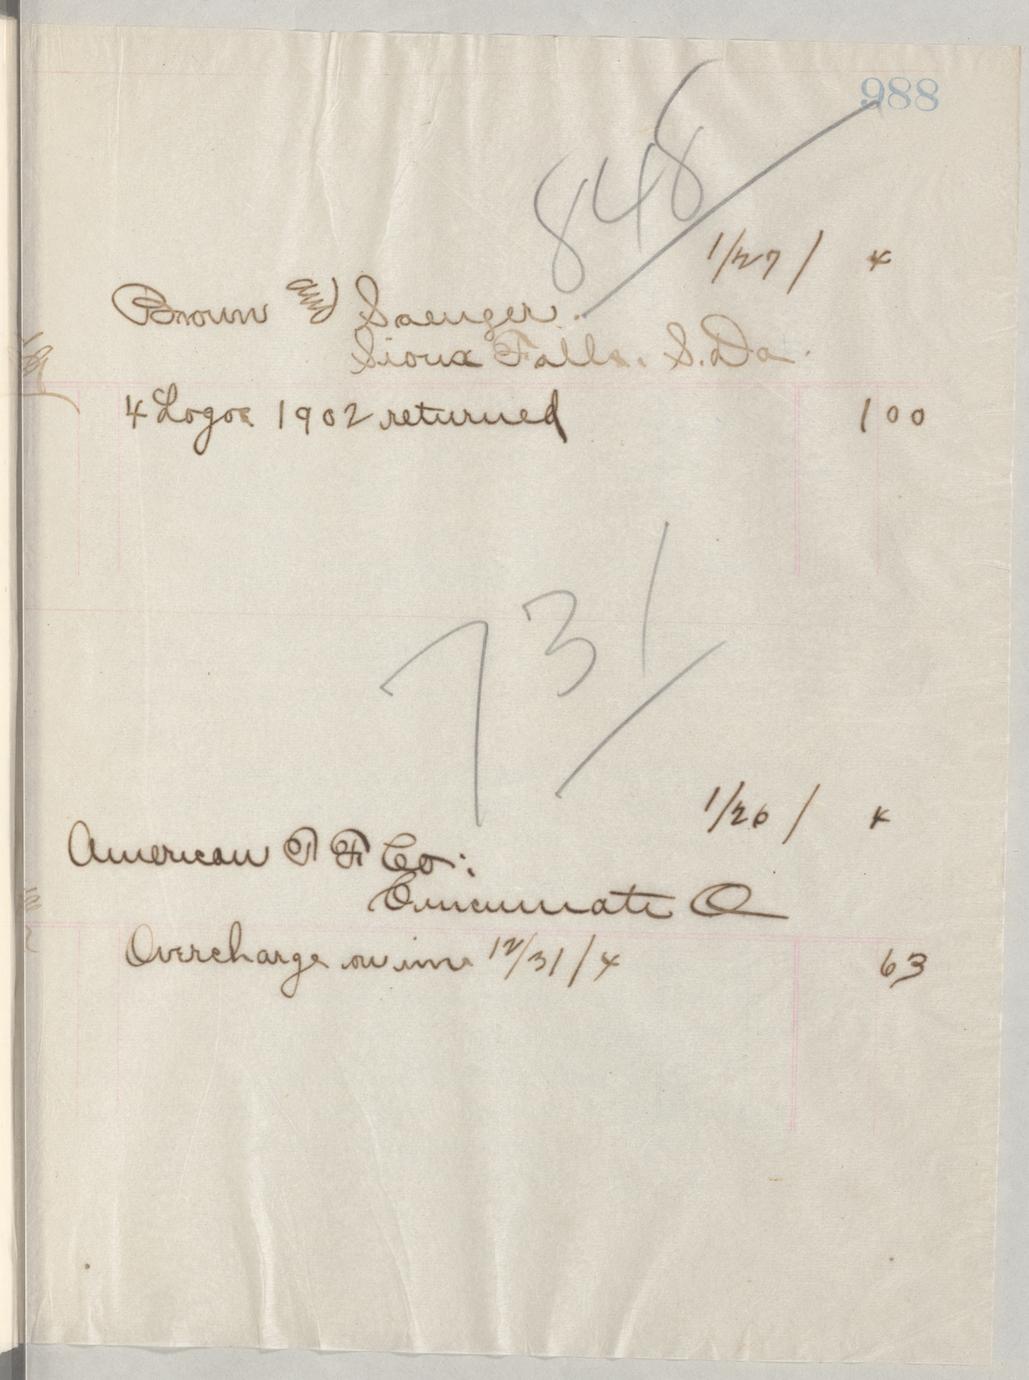 988
848
1/27/ 4
Brown and Saenger.
Sioux Falls. S. Da.
4 Logos 1902 returned 1 00
731
1/26/ 4
American T F Co.
Cincinnati O
Overcharge on inv. 12/31/4 63